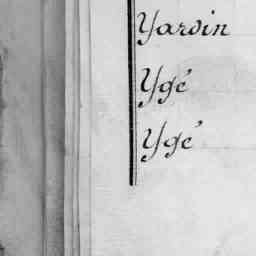 Yardin
Ygé
Ygé